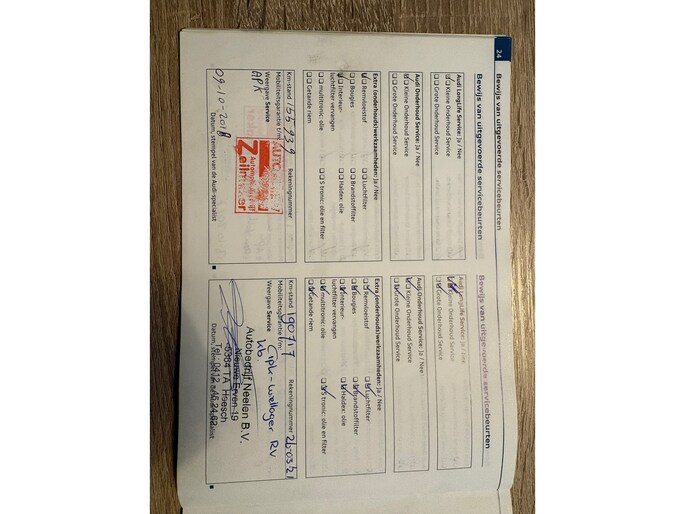 24
Bewijs van uitgevoerde servicebeurten
Bewijs van uitgevoerde servicebeurten
Audi LongLife Service: Ja / Nee
Kleine Onderhoud Service
Grote Onderhoud Service
Audi Onderhoud Service: Ja / Nee
Kleine Onderhoud Service
Grote Onderhoud Service
Extra (onderhouds)werkzaamheden: Ja / Nee
Remvloeistof Luchtfilter
Bougies Brandstoffilter
Interieur- Haldex: olie
luchtfilter vervangen
multitronic: olie S tronic: olie en filter
Getande riem
Km-stand 155939 Rekeningnummer
Mobiliteitsgarantie t/m:
Weergave Service
APK
AUTO
Zeilmaker
09-10-2018
Datum, stempel van de Audi-specialist
Bewijs van uitgevoerde servicebeurten
Audi LongLife Service: Ja / Nee
Kleine Onderhoud Service
Grote Onderhoud Service
Audi Onderhoud Service: Ja / Nee
Kleine Onderhoud Service
Grote Onderhoud Service
Extra (onderhouds)werkzaamheden: Ja / Nee
Remvloeistof Luchtfilter
Bougies Brandstoffilter
Interieur- Haldex: olie
luchtfilter vervangen
multitronic: olie S tronic: olie en filter
Getande riem
Km-stand 190717 Rekeningnummer 26-03-21
Mobiliteitsgarantie t/m:
Weergave Service
RV
Autobedrijf Neelen B.V.
Nieuwe Erven 19
5384 TA Heesch
Datum, stempel van de Audi-specialist